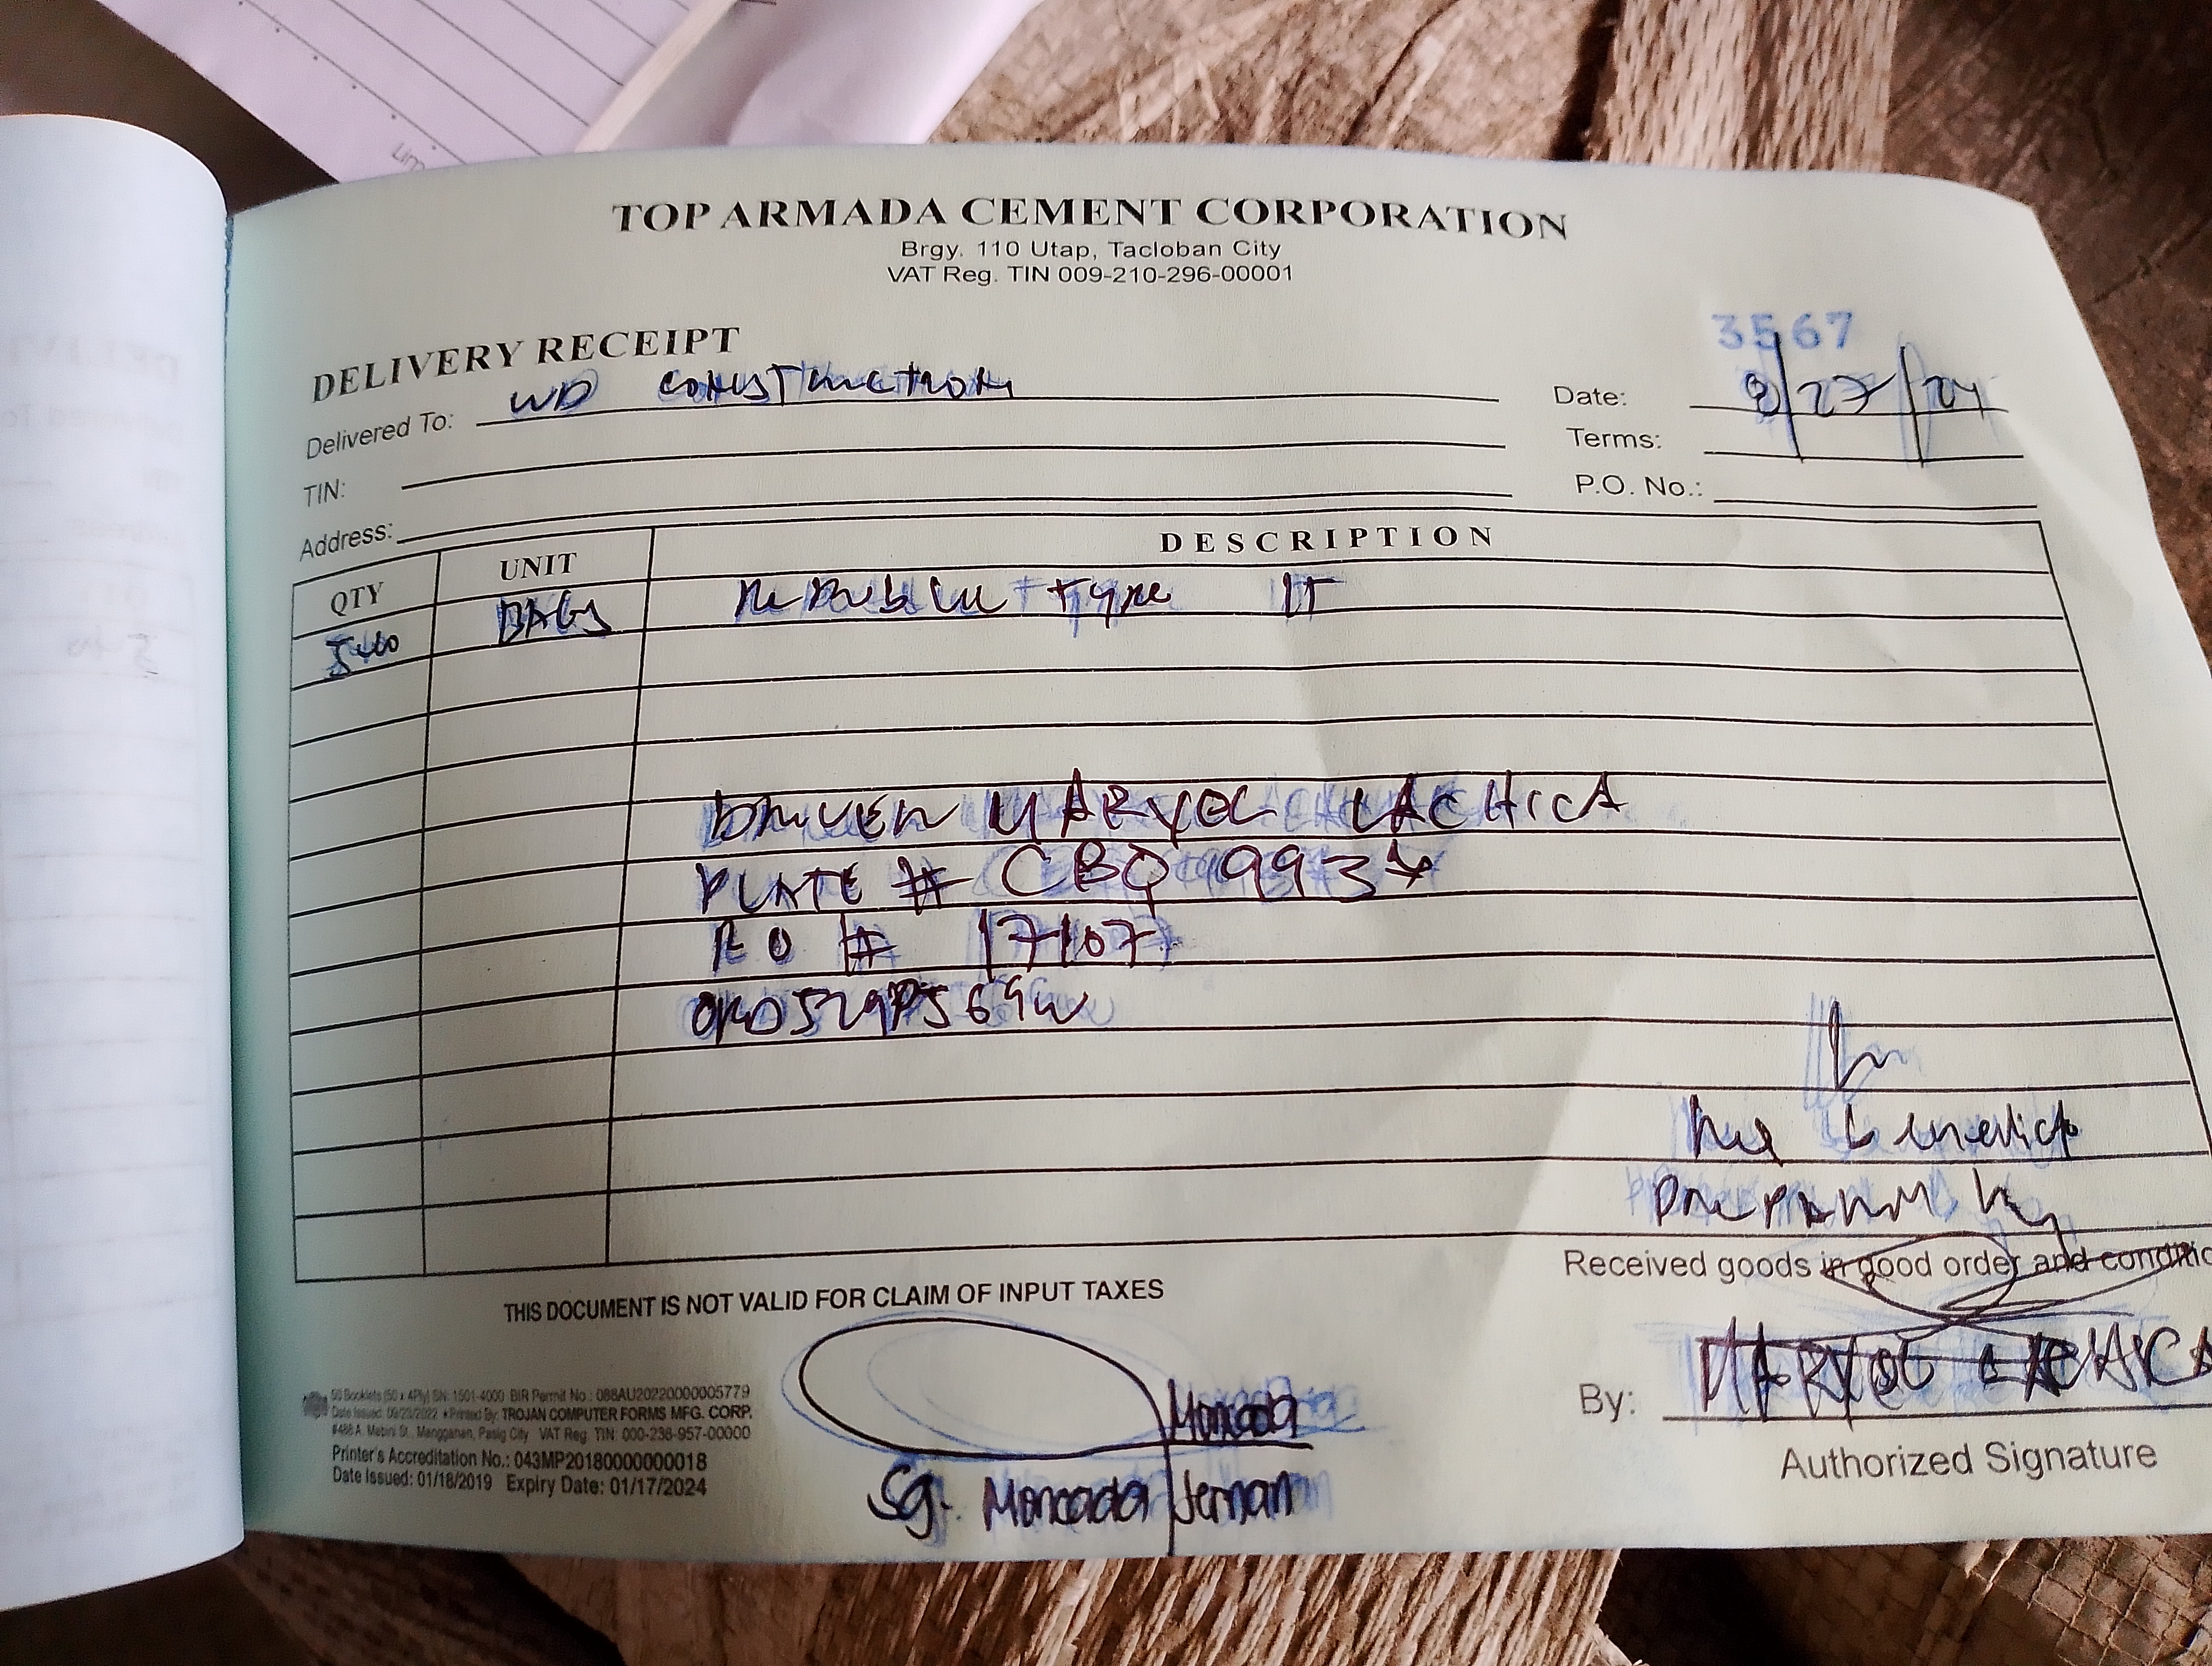 TOP ARMADA CEMENT CORPORATION
Brgy. 110 Utap, Tacloban City
VAT Reg. TIN 009-210-296-00001
3567
DELIVERY RECEIPT
Delivered To: WD CONSTRUCTION
Date: 8/27/24
TIN:
Terms:
Address:
P.O. No.:
QTY UNIT DESCRIPTION
540 BAGS Republic type 1T
DRIVER MARYOL LACHICA
PLATE # CBQ 9937
RO # 17107
Benedicto
Received goods in good order and conditio
THIS DOCUMENT IS NOT VALID FOR CLAIM OF INPUT TAXES
By: MARYOL LACHICA
Authorized Signature
Moncada
Sg. Moncada Jernan
50 Booklets (50 x 4Ply) SN: 1501-4000 BIR Permit No.: 088AU20220000005779
Date Issued: 09/23/2022 Printed By: TROJAN COMPUTER FORMS MFG. CORP.
#486 A. Mabini St., Manggahan, Pasig City VAT Reg. TIN: 000-236-957-00000
Printer's Accreditation No.: 043MP20180000000018
Date Issued: 01/18/2019 Expiry Date: 01/17/2024